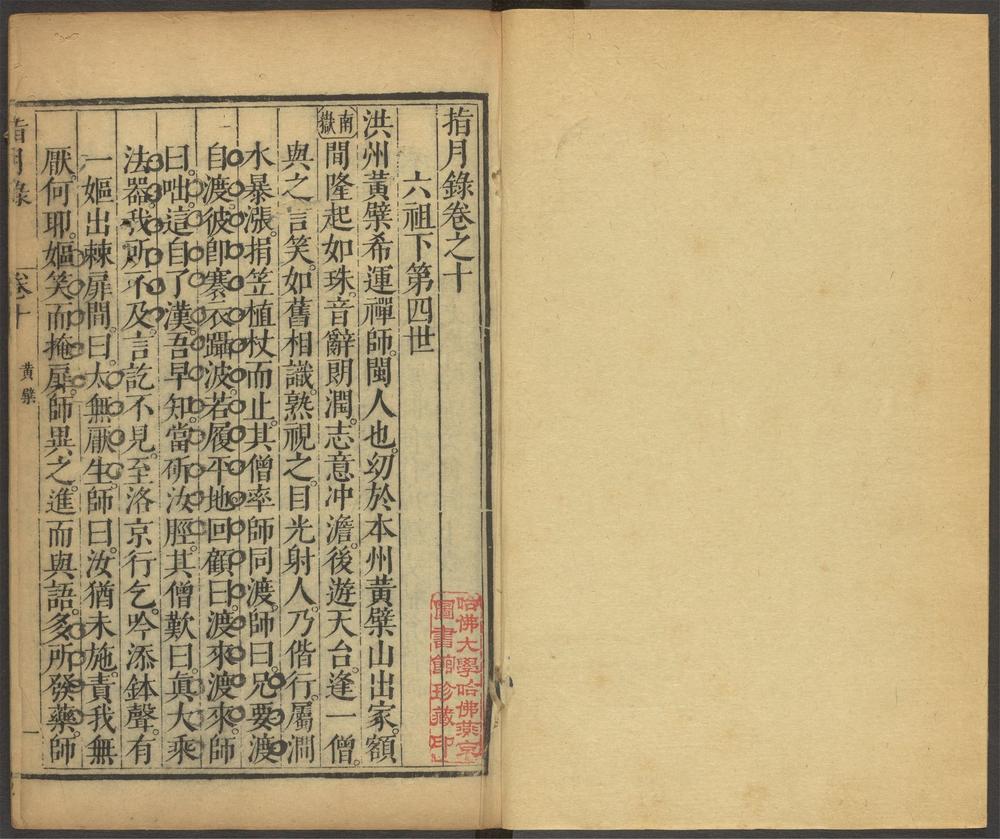 指月錄卷之十
六祖下第四世
南嶽
洪州黃檗希運禪師。閩人也。幼於本州黃檗山出家。額
間隆起如珠。音辭朗潤。志意冲澹。後遊天台。逢一僧。
與之言笑。如舊相識。熟視之。目光射人。乃偕行。屬澗
水暴漲。捐笠植杖而止。其僧率師同渡。師曰。兄要渡
自渡。彼卽褰衣躡波。若履平地。回顧曰。渡來渡來。師
曰。咄。這自了漢。吾早知。當斫汝脛。其僧歎曰。眞大乘
法器。我所不及。言訖不見。至洛京行乞。吟添鉢聲。有
一嫗出棘扉間。曰。太無厭生。師曰。汝猶未施。責我無
厭。何耶。嫗笑而掩扉。師異之。進而與語。多所發藥。師
指月錄
卷十
黃檗
一
哈佛大學哈佛燕京
圖書館珍藏印